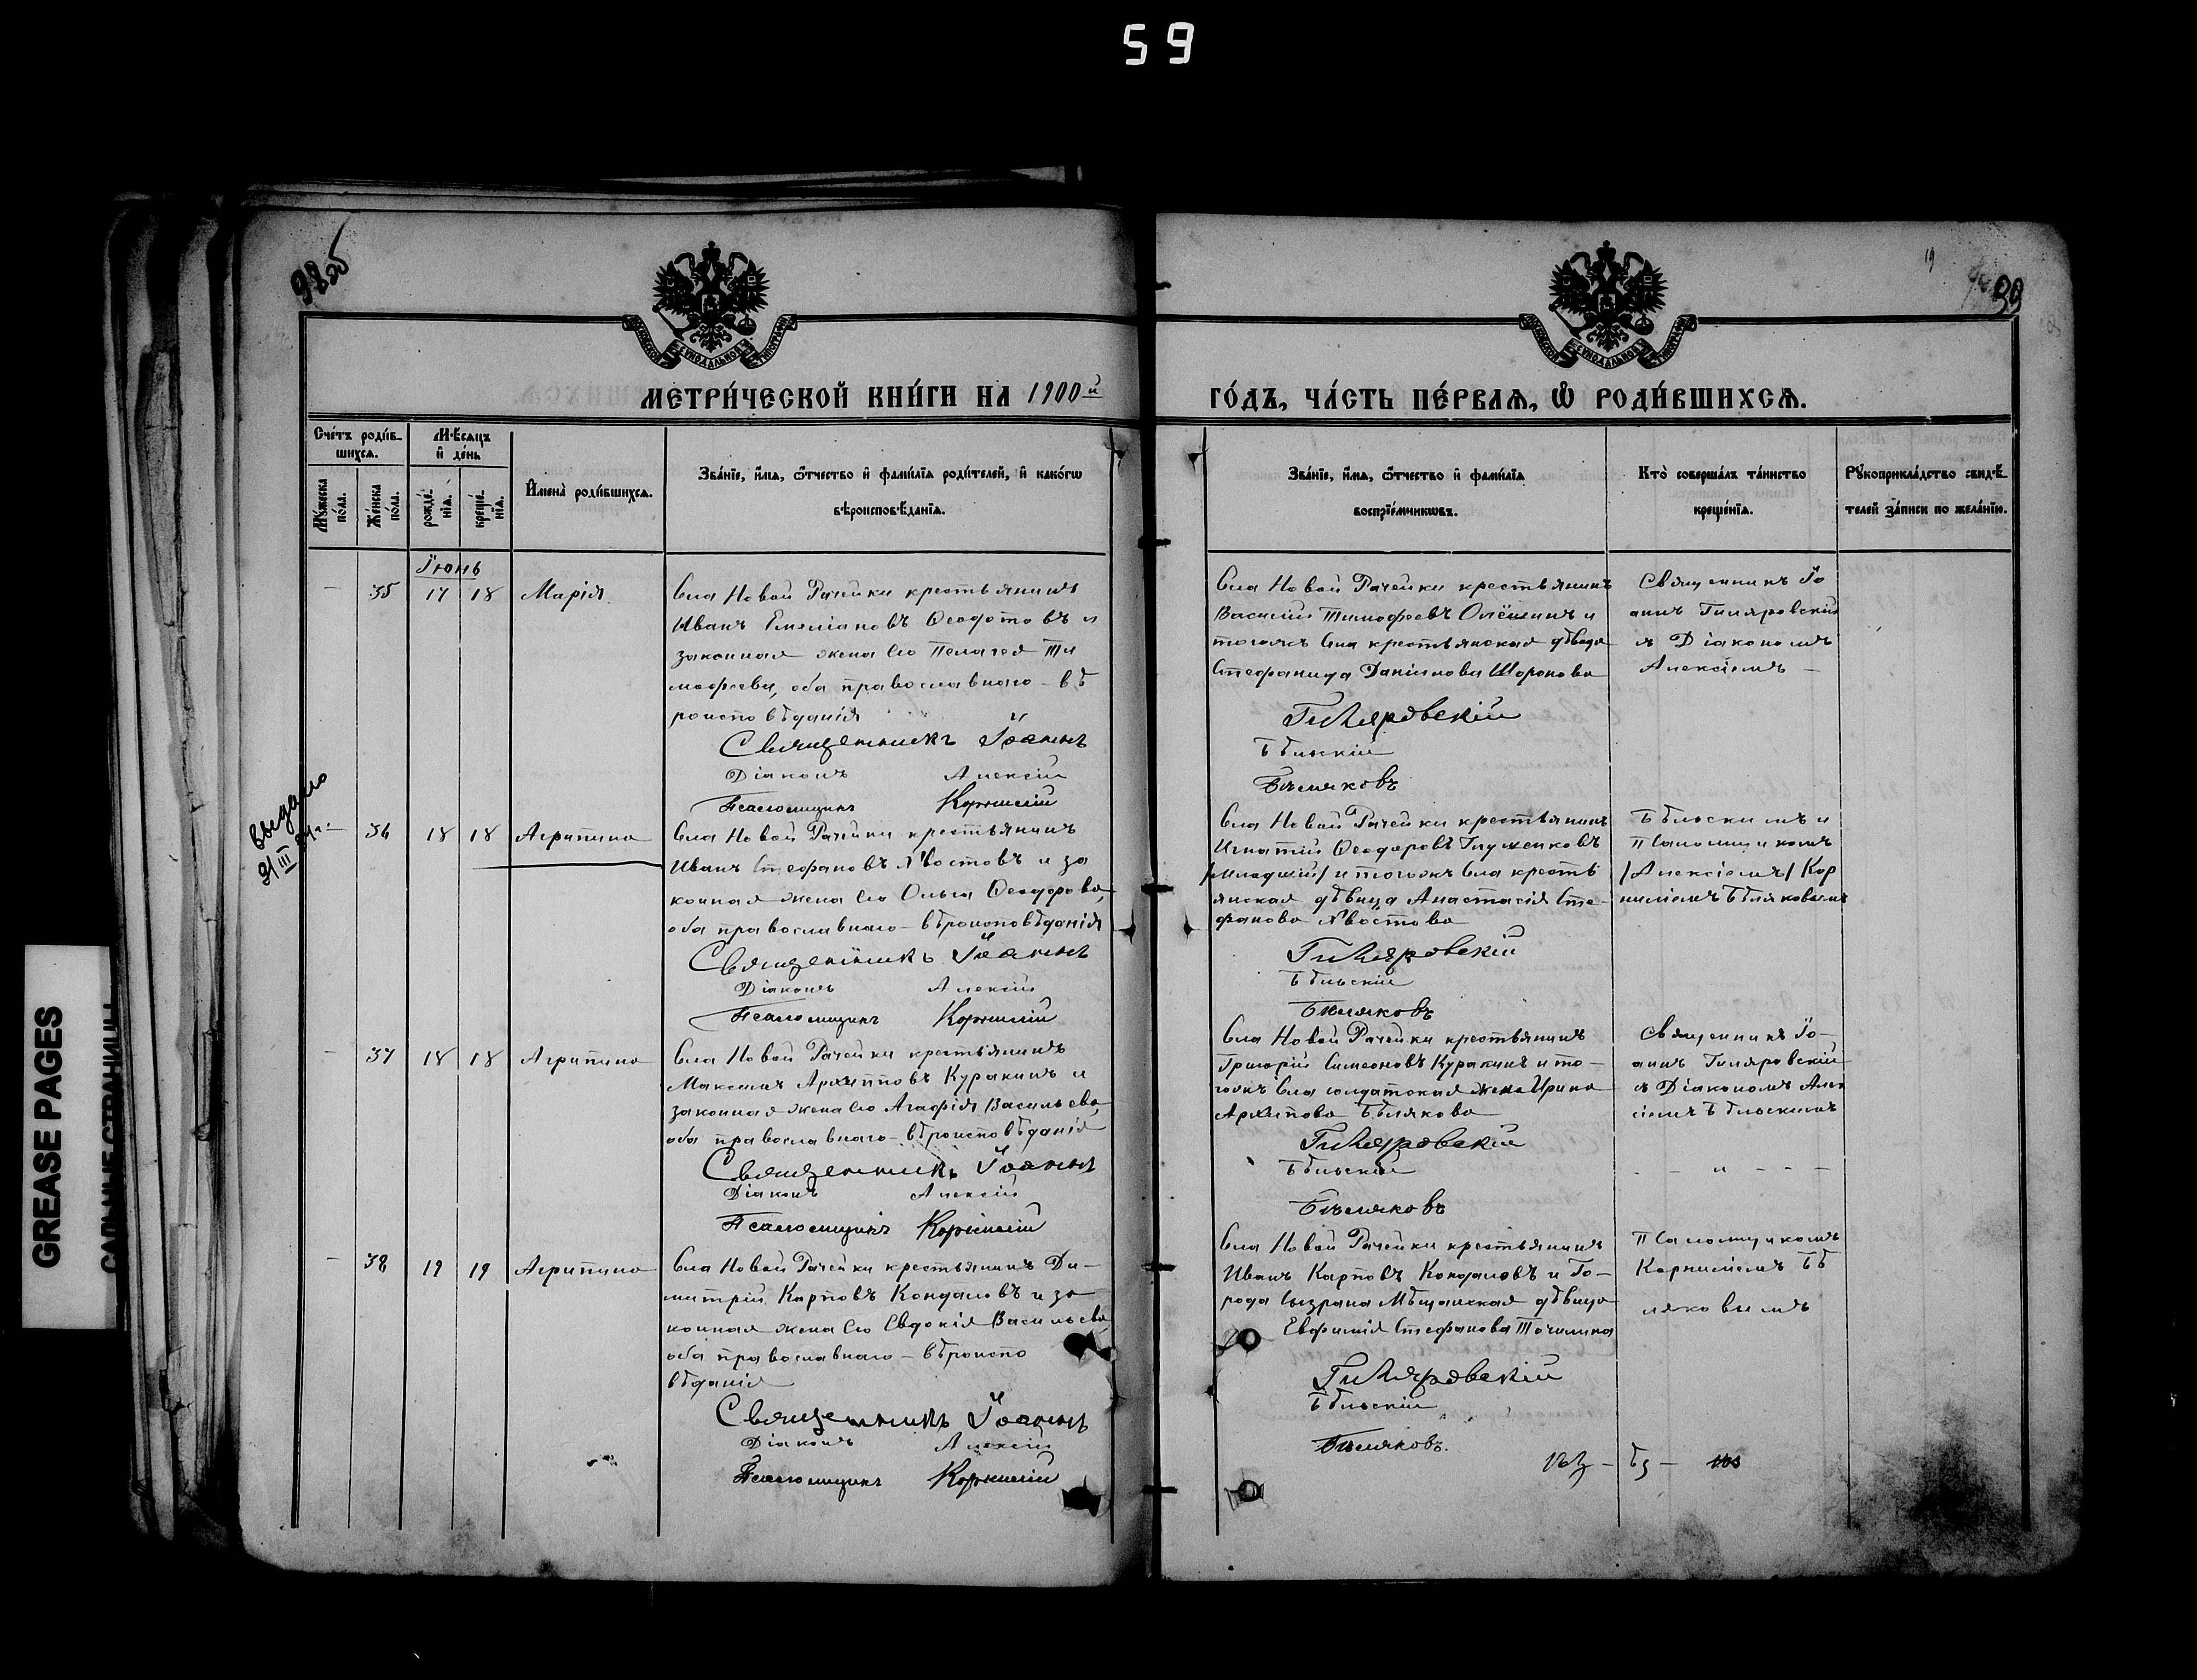 59
98об
19
99
МОСКОВСКОЙ СѴНОДАЛЬНОЙ ТИПОГРАФІИ
МОСКОВСКОЙ СѴНОДАЛЬНОЙ ТИПОГРАФІИ
МЕТРИ́ЧЕСКОЙ КНИ́ГИ НА 1900й
ГО́ДЪ, ЧА́СТЬ ПЕ́РВАѦ, Ѡ РОДИ́ВШИХСѦ.
Сче́тъ роди́в-
шихсѧ.
Мꙋ́жеска по́ла.
Же́нска по́ла.
Мѣ́сѧцъ
и҆ де́нь
рожде́-
нїѧ.
креще́-
нїѧ.
И҆мена̀ роди́вшихсѧ.
Зва́нїе, и҆́мѧ, ѻ҆́тчество и҆ фами́лїѧ роди́телей, и҆ како́гѡ
вѣроисповѣ́данїѧ.
Зва́нїе, и҆́мѧ, ѻ҆́тчество и҆ фами́лїѧ
воспрїе́мникѡвъ.
Кто̀ соверша́лъ та́инство
креще́нїѧ.
Рꙋкоприкла́дство свидѣ́-
телей за́писи по жела́нїю.
Іюнь
– 35 17 18 Марія
Села Новой Рачейки крестьянинъ
Иванъ Емеліановъ Ѳеодотовъ и
законная жена его Пелагея Ти
мофеева, оба православнаго – вѣ
роисповѣданія
Священникъ Іоаннъ
Діаконъ Алексій
Псаломщикъ Корнилій
Села Новой Рачейки крестьянинъ
Василій Тимофеевъ Олёшинъ и
тогожъ села крестьянская дѣвица
Стефанида Даніилова Шоронова
Гиляровскій
Бѣльскій
Бѣляковъ
Священникъ Іо
аннъ Гиляровскій
съ Діакономъ
Алексіемъ –
выдано
21/III
– 36 18 18 Агрипина
Села Новой Рачейки крестьянинъ
Иванъ Стефановъ Хвостовъ и за
конная жена его Ольга Ѳеодорова,
оба православнаго – вѣроисповѣданія
Священникъ Іоаннъ
Діаконъ Алексій
Псаломщикъ Корнилій
Села Новой Рачейки крестьянинъ
Игнатій Ѳеодоровъ Глуженковъ
/младшій/ и тогожъ села кресть
янская дѣвица Анастасія Сте-
фанова Хвостова
Гиляровскій
Бѣльскій
Бѣляковъ
Бѣльскимъ и
Псаломщикомъ
/Алексіемъ/ Кор
ниліемъ Бѣляковымъ
– 37 18 18 Агрипина
Села Новой Рачейки крестьянинъ
Максимъ Архипповъ Куракинъ и
законная жена его Агафія Васильева,
оба православнаго – вѣроисповѣданія
Священникъ Іоаннъ
Діаконъ Алексій
Псаломщикъ Корнилій
Села Новой Рачейки крестьянинъ
Григорій Симеоновъ Куракинъ и то-
гожъ села солдатская жена Ирина
Архипова Бѣлякова
Гиляровскій
Бѣльскій
Бѣляковъ
Священникъ Іо-
аннъ Гиляровскій
съ Діакономъ Алек
сіемъ Бѣльскимъ
– – и – – –
– 38 19 19 Агрипина
Села Новой Рачейки крестьянинъ Ди-
митрій Карповъ Кондаловъ и за
конная жена его Евдокія Васильева,
оба православнаго – вѣроиспо
вѣданія
Священникъ Іоаннъ
Діаконъ Алексій
Псаломщикъ Корнилій
Села Новой Рачейки крестьянинъ
Иванъ Карповъ Кондаловъ и Го-
рода Сызрана Мѣщанская дѣвица
Евфимія Стефанова Точилина
Гиляровскій
Бѣльскій
Бѣляковъ.
Псаломщикомъ
Корниліемъ Бѣ
ляковымъ
GREASE PAGES
САЛЬНЫЕ СТРАНИЦЫ